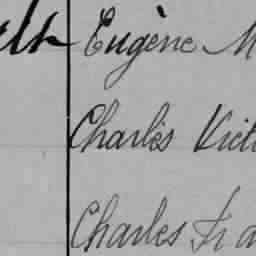 Eugène M
Charles Vict
Charles Fra